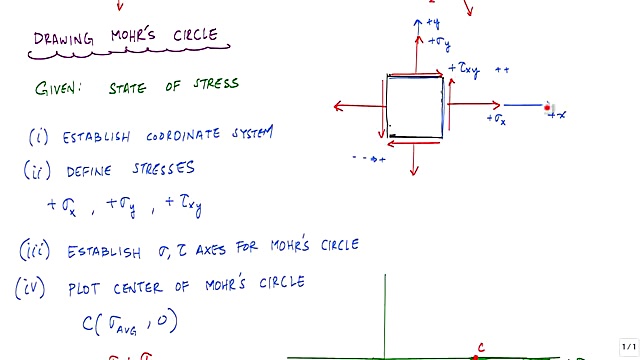 DRAWING MOHR'S CIRCLE
GIVEN: STATE OF STRESS
(i) ESTABLISH COORDINATE SYSTEM
(ii) DEFINE STRESSES
+σx , +σy , +τxy
(iii) ESTABLISH σ, τ AXES FOR MOHR'S CIRCLE
(iv) PLOT CENTER OF MOHR'S CIRCLE
C(σAVG , 0)
+y
+σy
+τxy ++
+σx
+x
- - ⇒ +
C
1/1